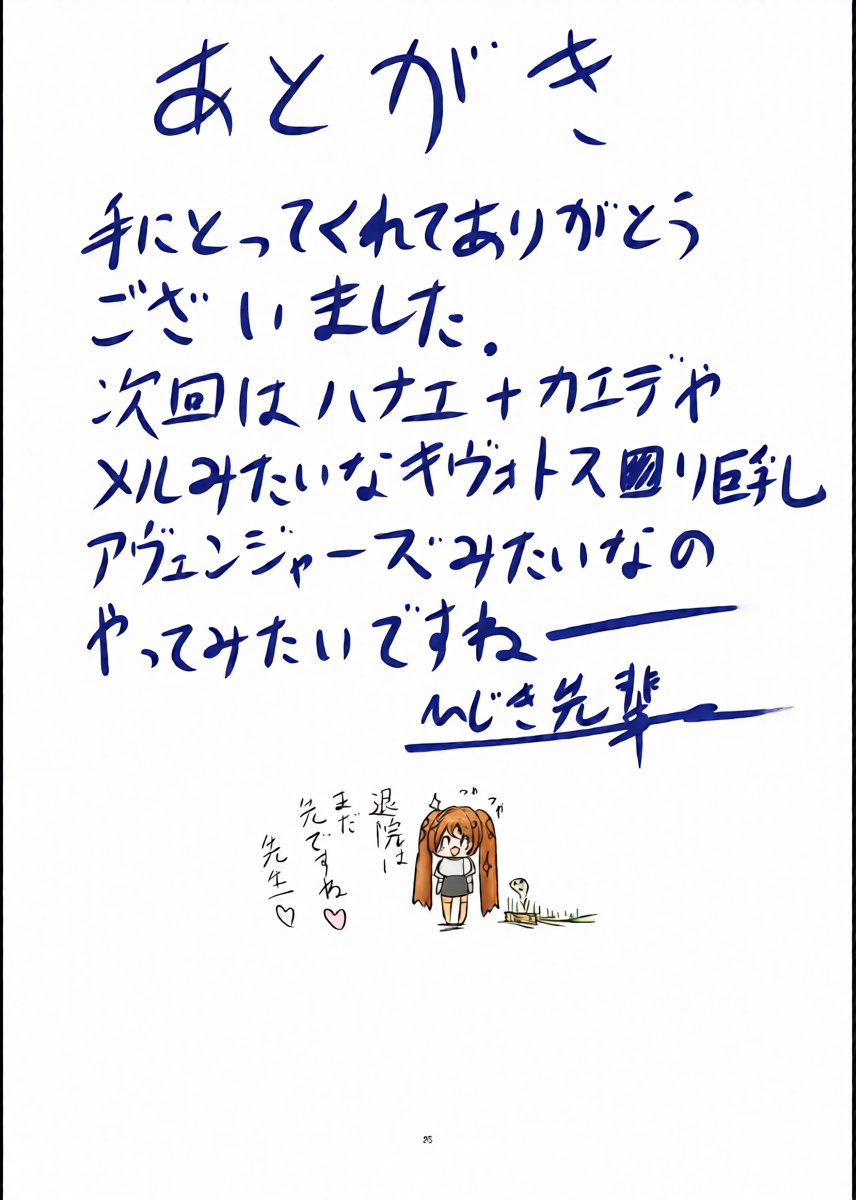 あとがき
手にとってくれてありがとう
ございました.
次回はハナエ+カエデや
メルみたいなキヴォトス困り巨乳
アヴェンジャーズみたいなの
やってみたいですねー
ひじき先輩
つやつや
退院は
まだ
先ですね♡
先生♡
25